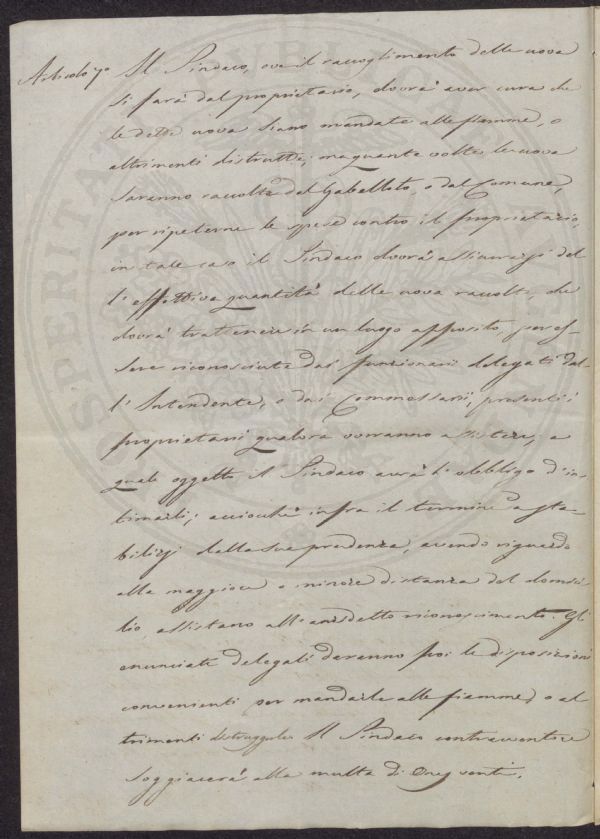 Articolo 7o Il Sindaco, ove il raccoglimento delle uova
si farà dal proprietario, dovrà aver cura che
le dette uova siano mandate alle fiamme, o
altrimenti distrutte; ma quante volte le uova
saranno raccolte dal Gabelloto, o dal Comune,
per ripeterne le spese contro il proprietario,
in tale caso il Sindaco dovrà assicurarsi del
l'effettiva quantità delle uova raccolte, che
dovrà trattenere in un luogo apposito, per es-
sere riconosciute dai funzionari delegati dal-
l'Intendente, o dai Commessarii, presenti i
proprietarii qualora vorranno assistere, a
quale oggetto il Sindaco avrà l'obbligo d'in-
timarli; acciocchè infra il termine a sta-
bilirsi dalla sua prudenza, avendo riguardo
alla maggiore o minore distanza del domici-
lio, assistano all'anzidetto riconoscimento. Gli
enunciati delegati daranno poi le disposizioni
convenienti per mandarle alle fiamme, o al
trimenti distruggerle. Il Sindaco contraventore
soggiacerà alla multa di Onze venti.
PROSPERITATI PVBLICAE AVGENDAE